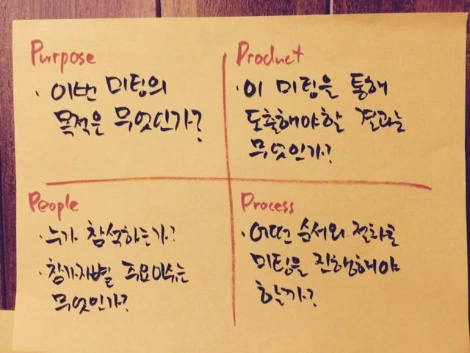 Purpose
· 이번 미팅의
목적은 무엇인가?
Product
· 이 미팅을 통해
도출해야할 결과는
무엇인가?
People
· 누가 참석하는가?
· 참가자별 주요이슈는
무엇인가?
Process
· 어떤 순서와 절차로
미팅을 진행해야
할까?